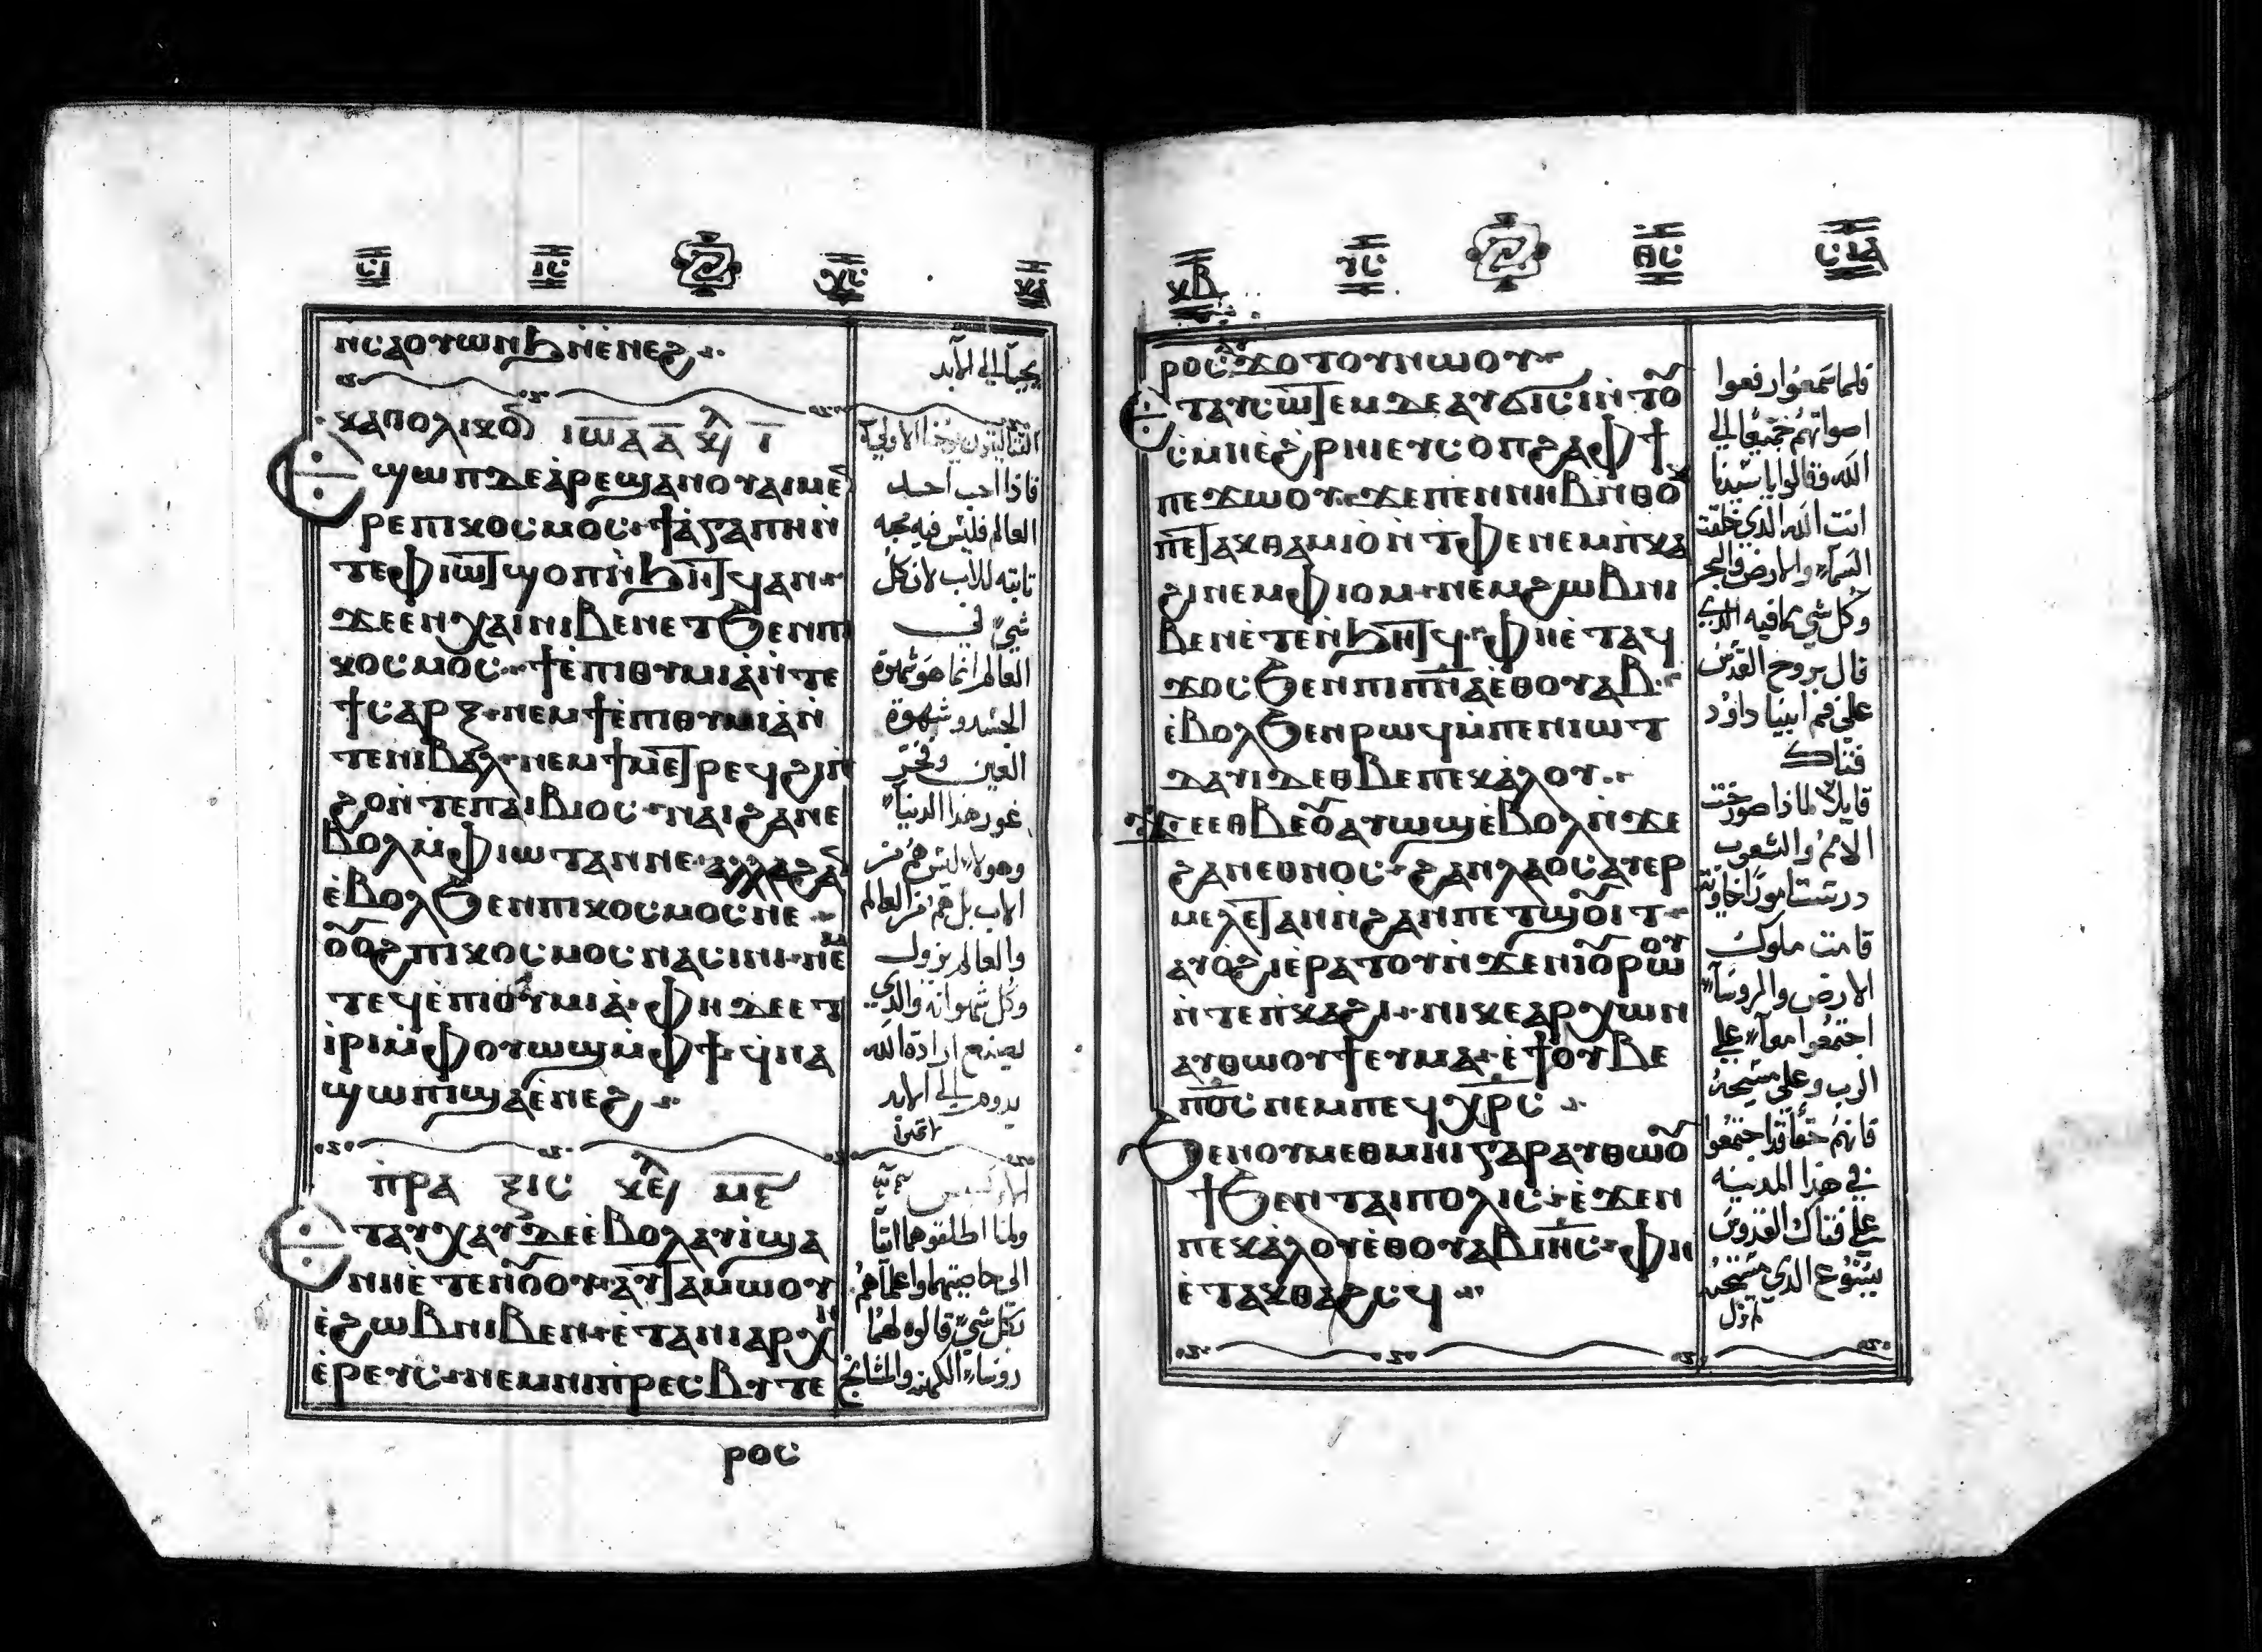 ⲛⲥⲁⲟⲩⲱⲛϧⲛ̀ⲉⲛⲉϩ
يحيا الى الابد
ⲕⲁⲑⲟⲗⲓⲕⲟⲛ ⲓⲱⲁ ⲁ̅ ⲕⲉ ⲓ̅
ⲉϣⲱⲡⲇⲉⲁⲣⲉϣⲁⲛⲟⲩⲁⲓⲙⲉ
ⲣⲉⲡⲓⲕⲟⲥⲙⲟⲥ ϯⲁ̀ⲅⲁⲡⲏⲛ̀
ⲧⲉⲫⲓⲱⲧϣⲟⲡⲛ̀ϧⲏⲧϥⲁⲛ
ϫⲉⲉⲛⲭⲁⲓⲛⲓⲃⲉⲛⲉⲧϧⲉⲛⲡⲓ
ⲕⲟⲥⲙⲟⲥ ϯⲉ̀ⲡⲓⲑⲩⲙⲓⲁ̀ⲛ̀ⲧⲉ
ϯⲥⲁⲣⲝ ⲛⲉⲙϯⲉ̀ⲡⲓⲑⲩⲙⲓⲁ̀ⲛ̀
ⲧⲉⲛⲓⲃⲁⲗ ⲛⲉⲙϯⲙⲉⲧⲣⲉϥϭⲓⲛ̀
ϩⲟⲛ̀ⲧⲉⲡⲁⲓⲃⲓⲟⲥ ⲛⲁⲓϩⲁⲛⲉ
ⲃⲟⲗⲙ̀ⲫⲓⲱⲧⲁⲛⲛⲉ ⲁⲗⲗⲁϩⲁⲛ
ⲉ̀ⲃⲟⲗϧⲉⲛⲡⲓⲕⲟⲥⲙⲟⲥⲛⲉ
ⲟⲩⲟϩⲡⲓⲕⲟⲥⲙⲟⲥⲛⲁⲥⲓⲛⲓ ⲛⲉⲙ
ⲧⲉϥⲉ̀ⲡⲓⲑⲩⲙⲓⲁ ⲫⲏⲇⲉⲉⲧ
ⲓ̀ⲣⲓⲙ̀ⲫⲟⲩⲱϣⲙ̀ⲫϯ ϥⲛⲁ
ϣⲱⲡⲓϣⲁⲉ̀ⲛⲉϩ
فاذا احب احد
العالم فليس فيه محبه
ثابته للاب لان كل
شي في
العالم انما هو شهوة
الجسد وشهوة
العين وفخر
غور هذا الدنيا
وهولاء ليس هم من
الاب بل هم من العالم
والعالم يزول
وكل شهواته والذي
يصنع ارادة الله
يدوم الى الابد
ⲡⲣⲁⲝⲓⲥ ⲕⲉ ⲙⲋ
ⲉⲧⲁⲩⲭⲁⲩⲇⲉⲉ̀ⲃⲟⲗⲁⲩⲓ̀ϣⲁ
ⲛⲏⲉ̀ⲧⲉⲛⲟⲩⲟⲩ ⲁⲩⲧⲁⲙⲱⲟⲩ
ⲉ̀ϩⲱⲃⲛⲓⲃⲉⲛ ⲉ̀ⲧⲁⲛⲓⲁⲣⲭⲏ
ⲉ̀ⲣⲉⲩⲥ ⲛⲉⲙⲛⲓⲡⲣⲉⲥⲃⲩⲧⲉ
ولما اطلقوهما اتيا
الى خاصيتهما واعلماهم
بكل شي قالوه لهما
روساء الكهنه والمشايخ
ⲣⲟⲥ
ⲣⲟⲥϫⲟⲧⲟⲩⲛⲱⲟⲩ
ⲉⲧⲁⲩⲥⲱⲧⲉⲙⲇⲉⲁⲩϭⲓⲥⲓⲛ̀ⲧⲟⲩ
ⲥⲙⲏⲉ̀ϩⲣⲏⲓⲉⲩⲥⲟⲡϩⲁⲫϯ
ⲡⲉϫⲱⲟⲩ ϫⲉⲡⲉⲛⲛⲏⲃⲛ̀ⲑⲟⲕ
ⲡⲉⲧⲁⲕⲑⲁⲙⲓⲟ̀ⲛ̀ⲧⲫⲉⲛⲉⲙⲡ̀ⲕⲁ
ϩⲓⲛⲉⲙⲫⲓⲟⲙ ⲛⲉⲙϩⲱⲃⲛⲓ
ⲃⲉⲛⲉ̀ⲧⲉⲛ̀ϧⲏⲧϥ ⲫⲏⲉ̀ⲧⲁϥ
ϫⲟⲥϧⲉⲛⲡⲓⲡ̅ⲛ̅ⲁ̅ⲉ̀ⲑⲟⲩⲁⲃ
ⲉ̀ⲃⲟⲗϧⲉⲛⲣⲱϥⲙ̀ⲡⲉⲛⲓⲱⲧ
ⲇⲁⲩⲓⲇⲉⲑⲃⲉⲡⲉⲕⲁ̀ⲗⲟⲩ
ϫⲉⲉⲑⲃⲉⲟⲩⲁⲩⲱϣⲉ̀ⲃⲟⲗⲛ̀ϫⲉ
ϩⲁⲛⲉⲑⲛⲟⲥ ϩⲁⲛⲗⲁⲟⲥⲁⲩⲉⲣ
ⲙⲉⲗⲉⲧⲁⲛⲛ̀ϩⲁⲛⲡⲉⲧϣⲟⲩⲓⲧ
ⲁⲩⲟϩⲓⲉ̀ⲣⲁⲧⲟⲩⲛ̀ϫⲉⲛⲓⲟⲩⲣⲱⲟⲩ
ⲛ̀ⲧⲉⲡ̀ⲕⲁϩⲓ ⲛⲓⲕⲉⲁⲣⲭⲱⲛ
ⲁⲩⲑⲱⲟⲩϯⲉⲩⲙⲁ ⲉ̀ϯⲟⲩⲃⲉ
ⲡ̅ⲟ̅ⲥ̅ⲛⲉⲙⲡⲉϥⲭ̅ⲣ̅ⲥ̅
ϧⲉⲛⲟⲩⲙⲉⲑⲙⲏⲓⲅⲁⲣⲁⲩⲑⲱⲟⲩ
ϯϧⲉⲛⲧⲁⲓⲡⲟⲗⲓⲥ ⲉ̀ϫⲉⲛ
ⲡⲉⲕⲁ̀ⲗⲟⲩⲉ̀ⲑⲟⲩⲁⲃⲓ̅ⲏ̅ⲥ̅ ⲫⲏ
ⲉ̀ⲧⲁⲕⲑⲁϩⲥϥ
فلما سمعوا رفعوا
اصواتهم جميعا الى
الله وقالوا يا سيدنا
انت الله الذي خلقت
السماء والارض والبحر
وكل شي مما فيه الذي
قال بروح القدس
على فم ابينا داوود
فتاك
قايلا لماذا صرخت
الامم والشعوب
درست امورا خاوية
قامت ملوك
الارض والروساء
اجتمعوا معا على
الرب وعلى مسيحه
فانهم حقا قد اجتمعوا
في هذا المدينه
على فتاك القدوس
يسوع الذي مسحته